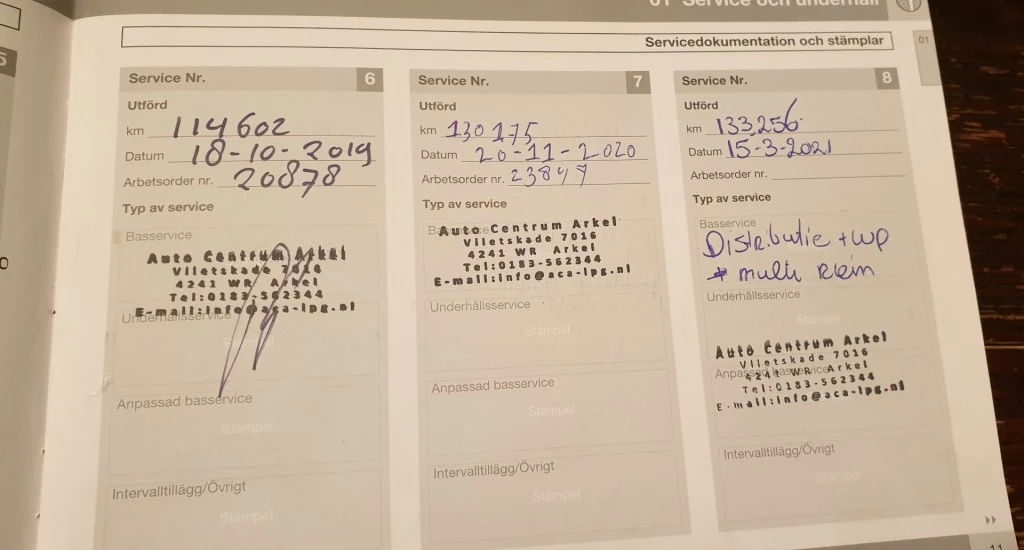 01 Service och underhåll
Servicedokumentation och stämplar
01
Service Nr. 6
Utförd
km 114602
Datum 18-10-2019
Arbetsorder nr. 20878
Typ av service
Basservice
Auto Centrum Arkel
Vlietskade 7016
4241 WR Arkel
Tel:0183-562344
E-mail:info@aca-lpg.nl
Underhållsservice
Anpassad basservice
Stämpel
Intervalltillägg/Övrigt
Stämpel
Service Nr. 7
Utförd
km 130175
Datum 20-11-2020
Arbetsorder nr. 23847
Typ av service
Basservice
Auto Centrum Arkel
Vlietskade 7016
4241 WR Arkel
Tel:0183-562344
E-mail:info@aca-lpg.nl
Underhållsservice
Stämpel
Anpassad basservice
Stämpel
Intervalltillägg/Övrigt
Stämpel
Service Nr. 8
Utförd
km 133.256
Datum 15-3-2021
Arbetsorder nr.
Typ av service
Basservice
Distributie + wp
+ multi riem
Underhållsservice
Stämpel
Auto Centrum Arkel
Vlietskade 7016
Anpassad basservice
4241 WR Arkel
Tel:0183-562344
E-mail:info@aca-lpg.nl
Intervalltillägg/Övrigt
Stämpel
11